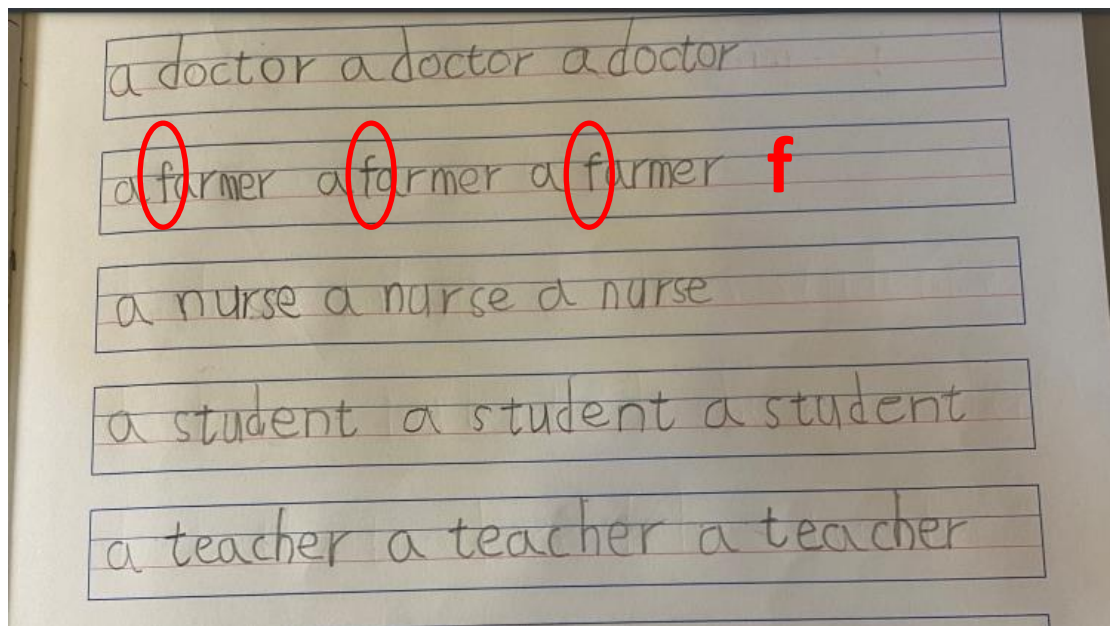 a doctor a doctor a doctor
a farmer a farmer a farmer f
a nurse a nurse a nurse
a student a student a student
a teacher a teacher a teacher